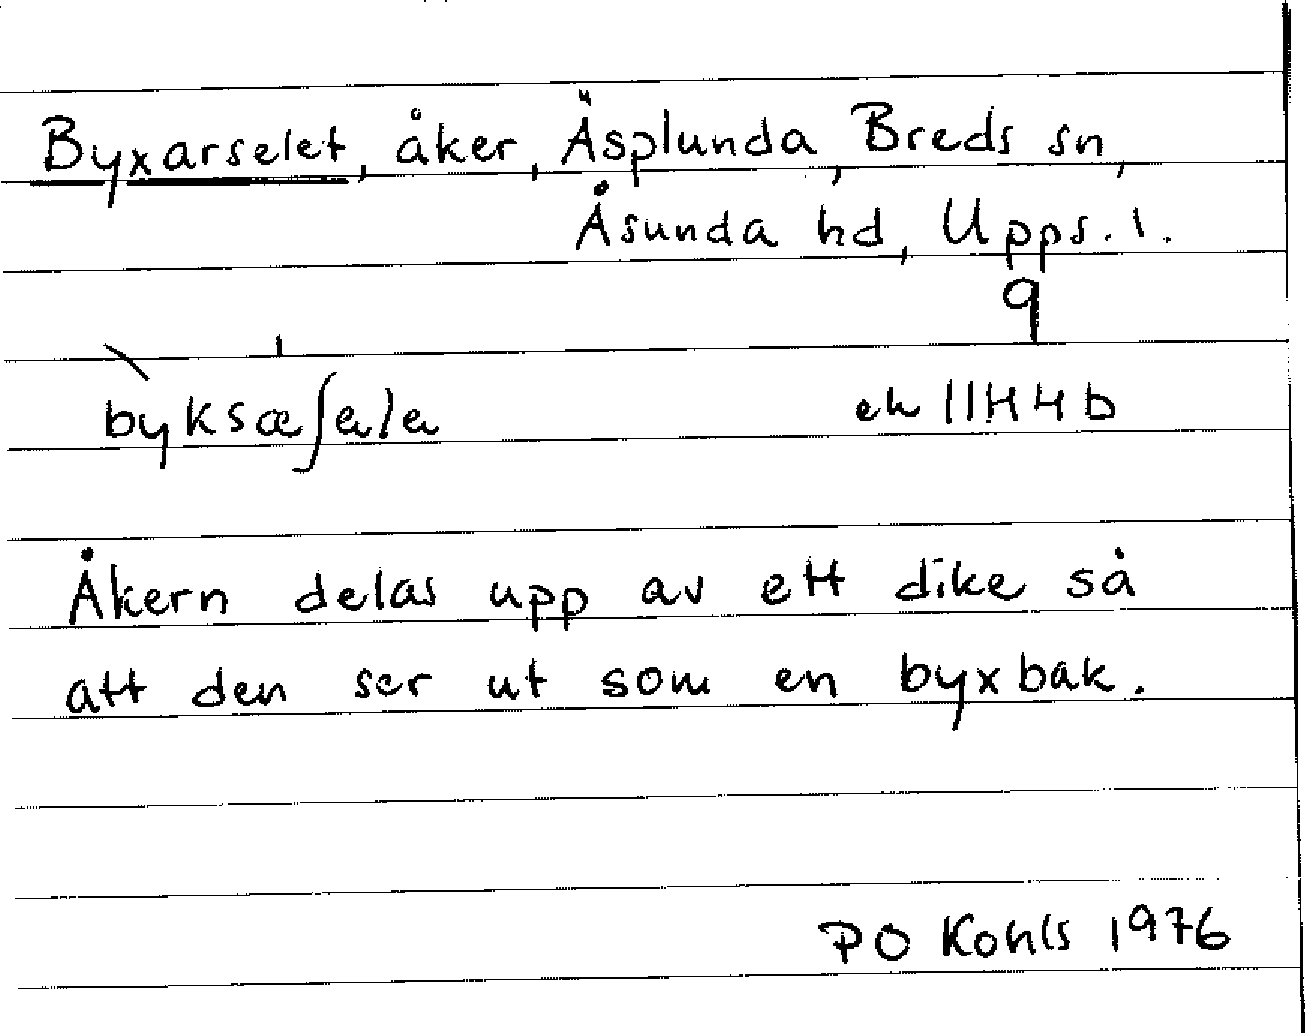 Byxarselet, åker, Äsplunda, Breds sn,
Åsunda hd, Upps. l.
9
byksæʃala ek 11H4b
Åkern delas upp av ett dike så
att den ser ut som en byxbak.
PO Kohls 1976